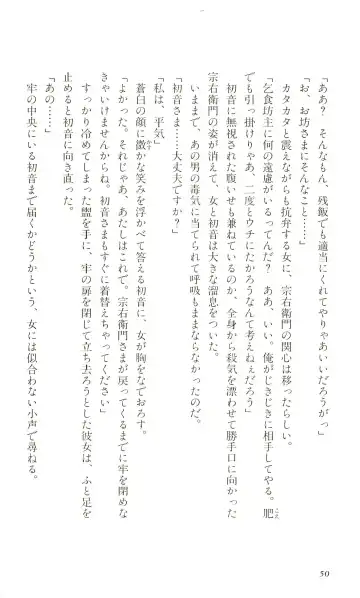 「ああ? そんなもん、残飯でも適当にくれてやりゃあいいだろうがっ」
「お、お坊さまにそんなこと……」
カタカタと震えながらも抗弁する女に、宗右衛門の関心は移ったらしい。
「乞食坊主に何の遠慮がいるってんだ? ああ、いい。俺がじきじきに相手してやる。肥
でも引っ掛けりゃあ、二度とウチにたかろうなんて考えねぇだろう」
初音に無視された腹いせも兼ねているのか、全身から殺気を漂わせて勝手口に向かった
宗右衛門の姿が消えて、女と初音は大きな溜息をついた。
いままで、あの男の毒気に当てられて呼吸もままならなかったのだ。
「初音さま……大丈夫ですか?」
「私は、平気」
蒼白の顔に微かな笑みを浮かべて答える初音に、女が胸をなでおろす。
「よかった。それじゃあ、あたしはこれで。宗右衛門さまが戻ってくるまでに牢を閉めな
きゃいけませんからね。初音さまもすぐに着替えちゃってください」
すっかり冷めてしまった盥を手に、牢の扉を閉じて立ち去ろうとした彼女は、ふと足を
止めると初音に向き直った。
「あの……」
牢の中央にいる初音まで届くかどうかという、女には似合わない小声で尋ねる。
こえ
かす
50